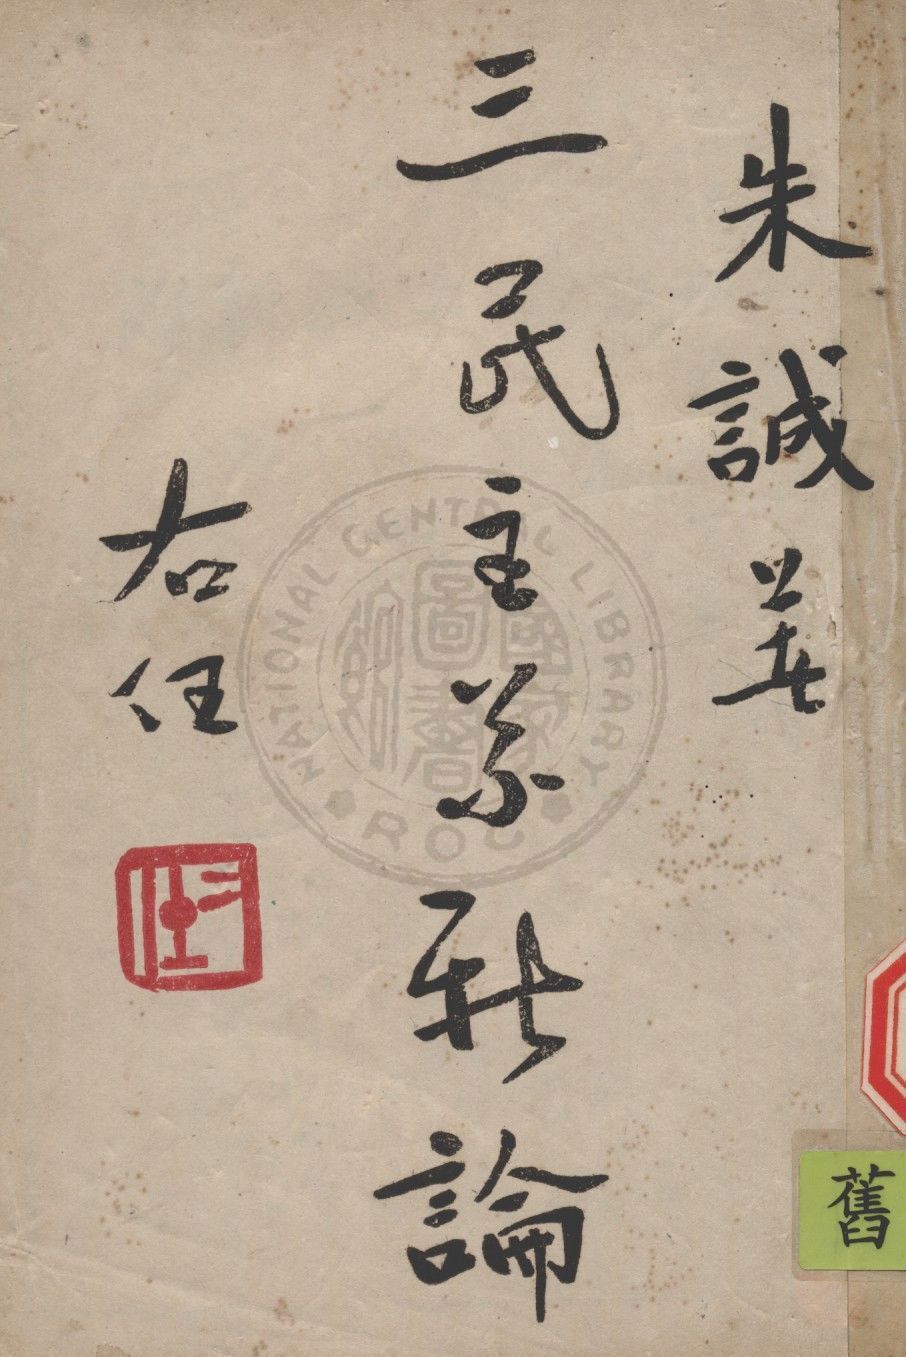 朱誠著
三民主義新論
右任
NATIONAL CENTRAL LIBRARY
ROC
國家圖書館
舊